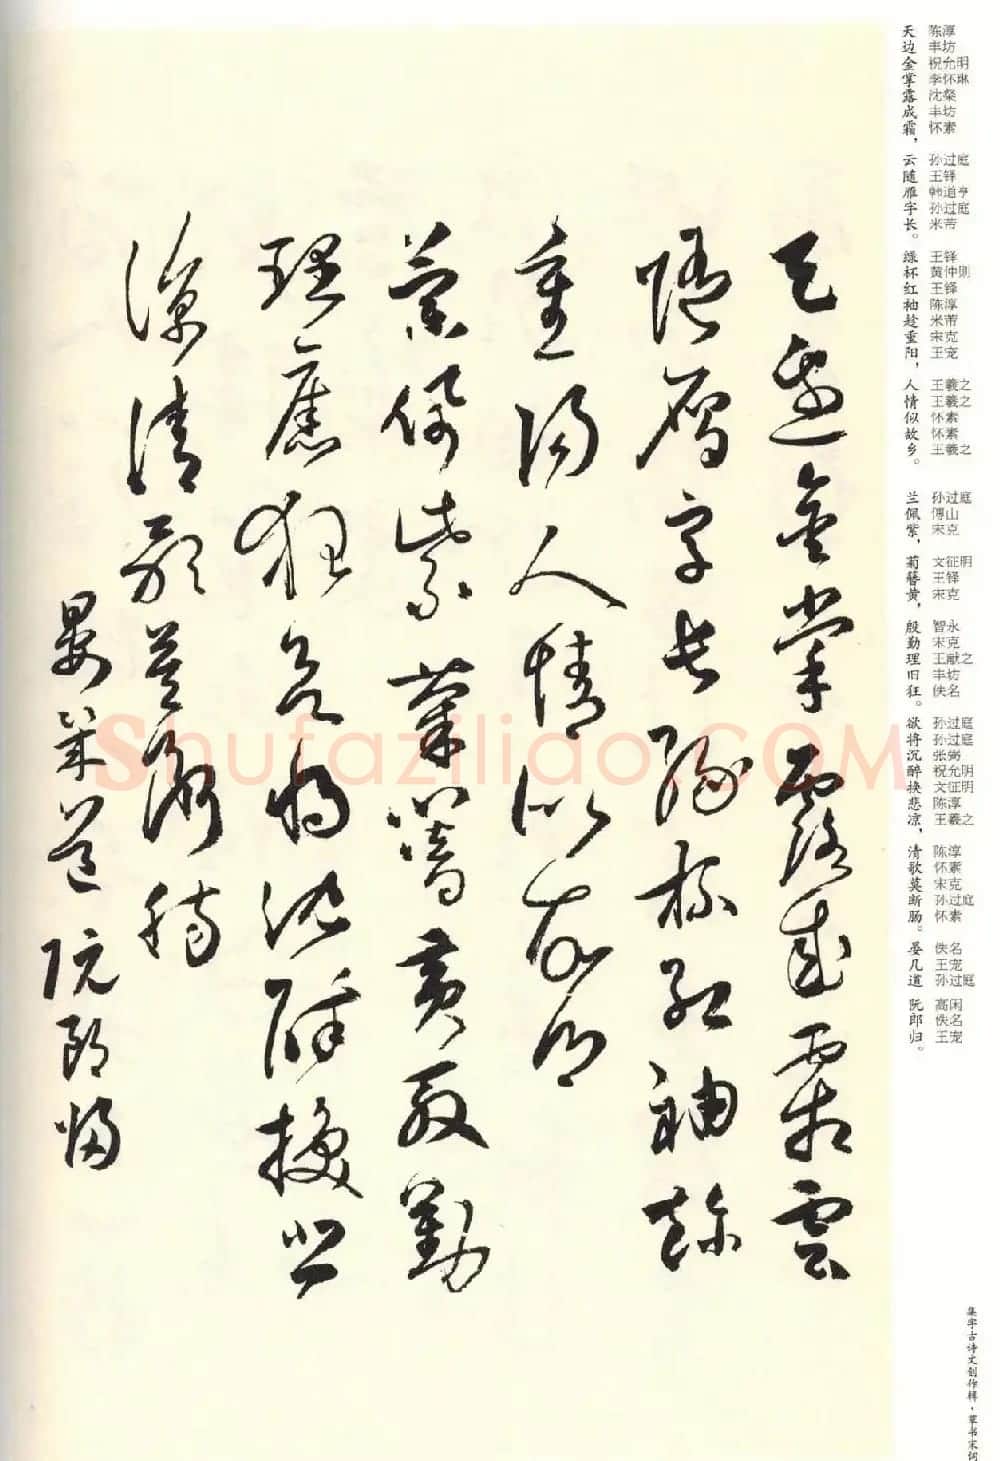 天邊金掌露成霜雲
隨雁字長綠杯紅袖趁
重陽人情似故鄉
蘭佩紫菊簪黃殷勤
理舊狂欲將沉醉換悲
涼清歌莫斷腸
晏幾道 阮郎歸
天边金掌露成霜，云随雁字长。绿杯红袖趁重阳，人情似故乡。 兰佩紫，菊簪黄，殷勤理旧狂。欲将沉醉换悲凉，清歌莫断肠。晏几道 阮郎归。
陈淳 丰坊 祝允明 李怀琳 沈粲 丰坊 怀素 孙过庭 王铎 韩道亨 孙过庭 米芾 王铎 黄仲则 王铎 陈淳 米芾 宋克 王宠 王羲之 王羲之 怀素 怀素 王羲之 孙过庭 傅山 宋克 文征明 王铎 宋克 智永 宋克 王献之 丰坊 佚名 孙过庭 孙过庭 张弼 祝允明 文征明 陈淳 王羲之 陈淳 怀素 宋克 孙过庭 怀素 佚名 王宠 孙过庭 高闲 佚名 王宠
集字古诗文创作辑·草书宋词
Shufaziliao.COM